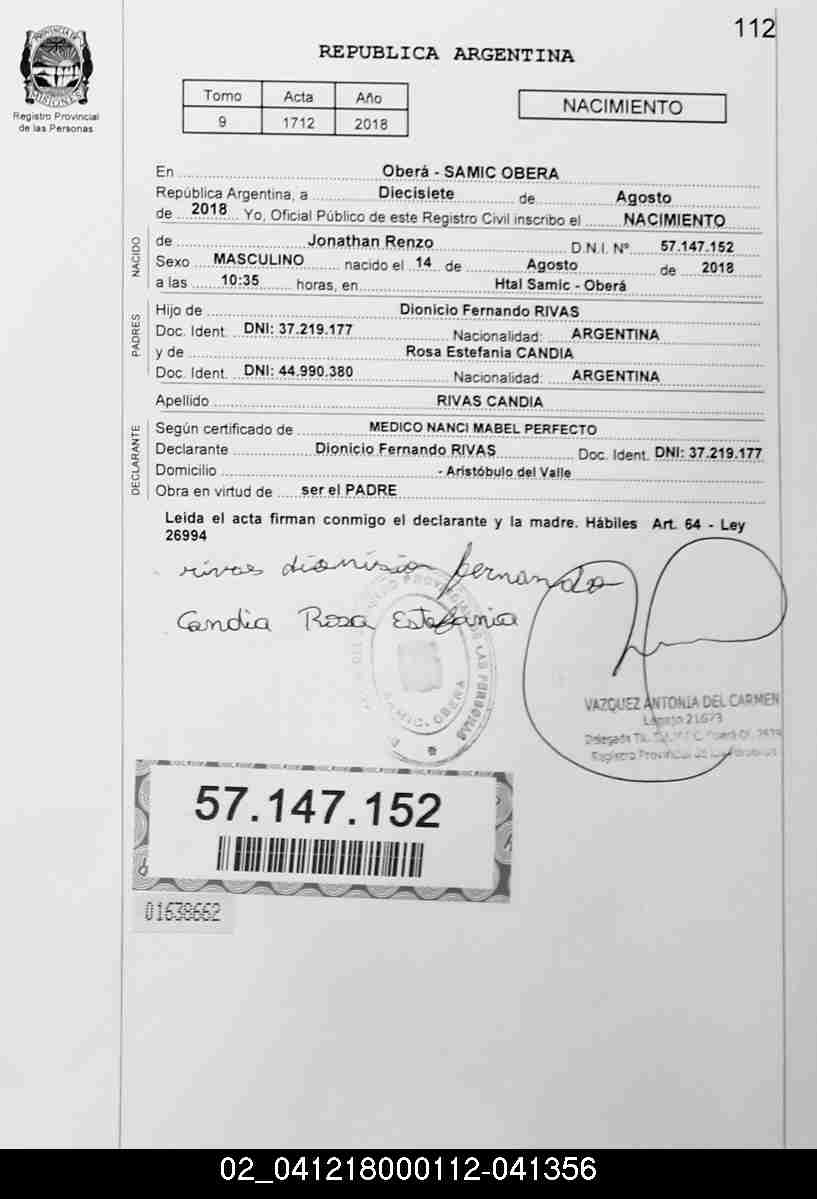 112
REPUBLICA ARGENTINA
PROVINCIA DE
MISIONES
Registro Provincial
de las Personas
Tomo Acta Año
9 1712 2018
NACIMIENTO
En Oberá - SAMIC OBERA
República Argentina, a Diecisiete de Agosto
de 2018 Yo, Oficial Público de este Registro Civil inscribo el NACIMIENTO
NACIDO
de Jonathan Renzo D.N.I. Nº 57.147.152
Sexo MASCULINO nacido el 14 de Agosto de 2018
a las 10:35 horas, en Htal Samic - Oberá
PADRES
Hijo de Dionicio Fernando RIVAS
Doc. Ident. DNI: 37.219.177 Nacionalidad: ARGENTINA
y de Rosa Estefania CANDIA
Doc. Ident. DNI: 44.990.380 Nacionalidad: ARGENTINA
Apellido RIVAS CANDIA
DECLARANTE
Según certificado de MEDICO NANCI MABEL PERFECTO
Declarante Dionicio Fernando RIVAS Doc. Ident. DNI: 37.219.177
Domicilio - Aristóbulo del Valle
Obra en virtud de ser el PADRE
Leida el acta firman conmigo el declarante y la madre. Hábiles Art. 64 - Ley
26994
rivas dionisio fernando
Candia Rosa Estefania
SAMIC. OBERA
LAS PERSONAS
VAZQUEZ ANTONIA DEL CARMEN
Legajo 21673
Registro Provincial de las Personas
57.147.152
01638662
02_041218000112-041356